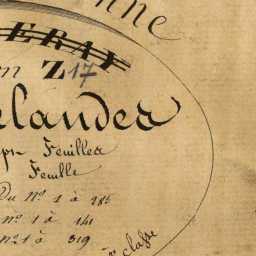 nne
ERAY
n Z 17
elandes
ps. Feuilles
Feuille
Du n° 1 à 285
n° 1 à 141
n° 1 à 319
classe